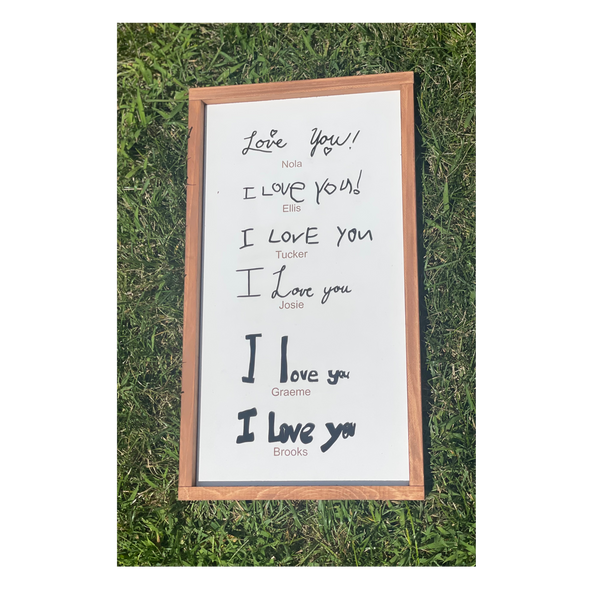 Love You!
Nola
I LOVE YOU!
Ellis
I LOVE YOU
Tucker
I Love you
Josie
I love you
Graeme
I Love you
Brooks